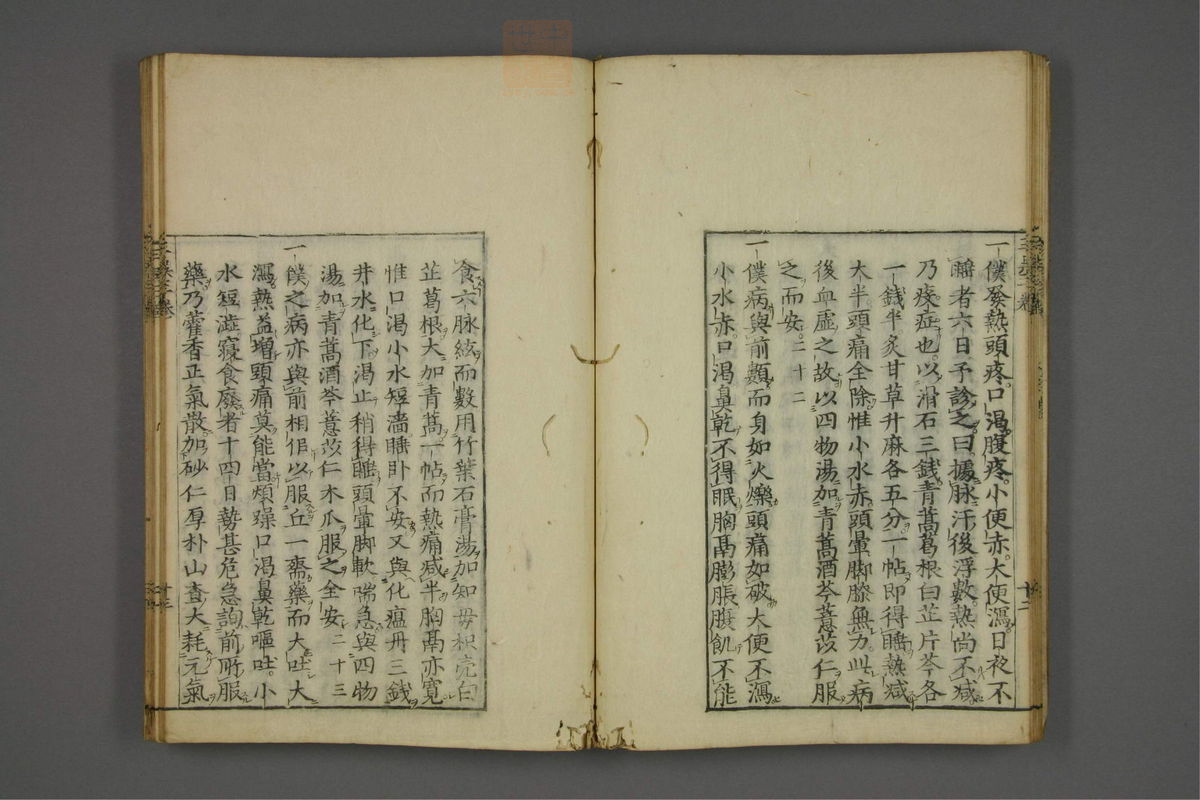 一僕發熱頭疼口渴腹疼小便赤大便瀉日夜不
睡者六日予診之曰據脉汗後浮數熱尚不减
乃疫症也以滑石三錢青蒿葛根白芷片芩各
一錢半炙甘草升麻各五分一帖即得睡熱减
大半頭痛全除惟小水赤頭暈脚膝無力此病
後血虛之故以四物湯加青蒿酒芩薏苡仁服
之而安二十二
一僕病與前類而身如火爍頭痛如破大便不瀉
小水赤口渴鼻乾不得眠胸鬲膨脹腹飢不能
食六脉絃而數用竹葉石膏湯加知毋枳壳白
芷葛根大加青蒿一帖而熱痛减半胸鬲亦寬
惟口渴小水短濇睡卧不安又與化瘟丹三錢
井水化下渴止稍得睡頭暈脚軟喘急與四物
湯加青蒿酒芩薏苡仁木瓜服之全安二十三
一僕之病亦與前相似以服丘一齋藥而大吐大
瀉熱益增頭痛莫能當煩躁口渴鼻乾嘔吐小
水短澁寢食廢者十四日勢甚危急詢前所服
藥乃藿香正氣散加砂仁厚朴山查大耗元氣